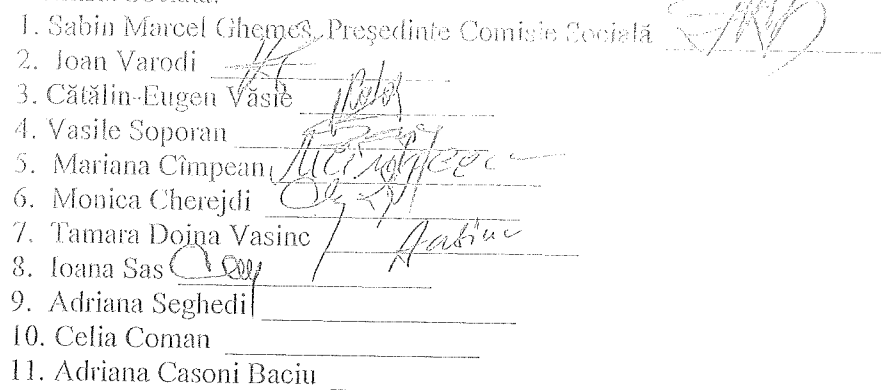 1. Sabin Marcel Ghemeş, Preşedinte Comisie Socială
2. Ioan Varodi
3. Cătălin-Eugen Văsie
4. Vasile Soporan
5. Mariana Cîmpean
6. Monica Cherejdi
7. Tamara Doina Vasinc
8. Ioana Sas
9. Adriana Seghedi
10. Celia Coman
11. Adriana Casoni Baciu